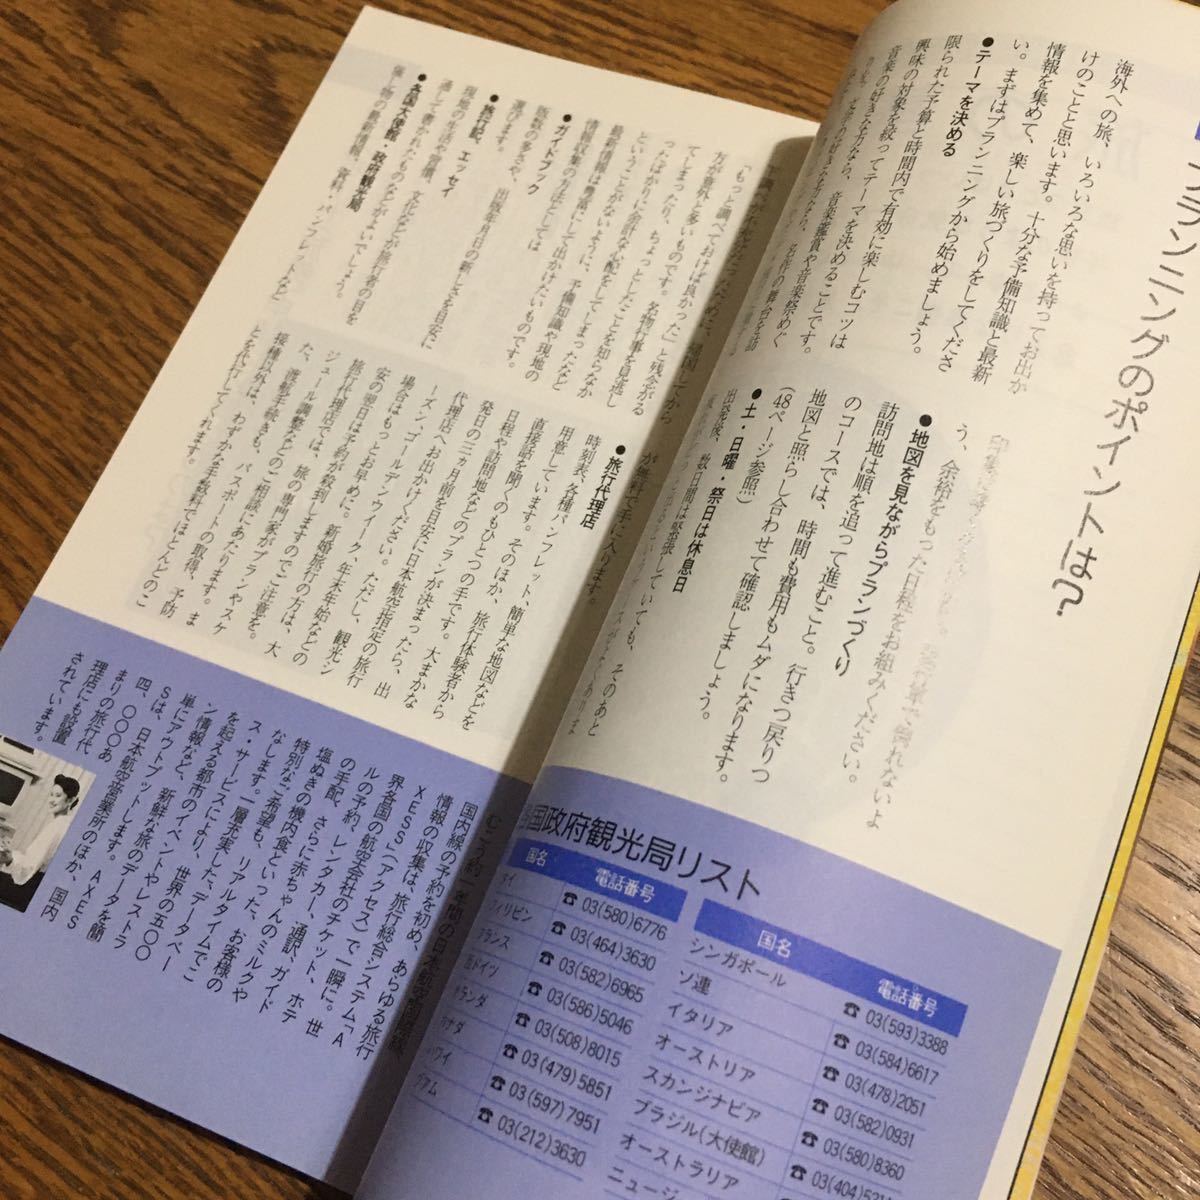 プランニングのポイントは?
海外への旅、いろいろな思いを持ってお出か
けのことと思います。十分な予備知識と最新
情報を集めて、楽しい旅づくりをしてくださ
い。まずはプランニングから始めましょう。
●テーマを決める
限られた予算と時間内で有効に楽しむコツは
興味の対象を絞ってテーマを決めることです。
音楽の好きな方なら、音楽鑑賞や音楽祭めぐ
う、余裕をもった日程をお組みください。
●地図を見ながらプランづくり
訪問地は順を追って進むこと。行きつ戻りつ
のコースでは、時間も費用もムダになります。
地図と照らし合わせて確認しましょう。
(48ページ参照)
●土・日曜・祭日は休息日
出発後、数日間は緊張していても、そのあと
国政府観光局リスト
国名 電話番号
タイ ☎03(580)6776
フィリピン ☎03(464)3630
フランス ☎03(582)6965
西ドイツ ☎03(586)5046
オランダ ☎03(508)8015
カナダ ☎03(479)5851
ハワイ ☎03(597)7951
グアム ☎03(212)3630
国名 電話番号
シンガポール ☎03(593)3388
ソ連 ☎03(584)6617
イタリア ☎03(478)2051
オーストリア ☎03(582)0931
スカンジナビア ☎03(580)8360
ブラジル(大使館)
オーストラリア
「もっと調べておけば良かった」と残念がる
方が意外と多いものです。名物行事を見逃し
てしまったり、ちょっとしたことを知らなか
ったばかりに余計な心配をしてしまったなど
ということがないように、予備知識や現地の
最新情報は豊富にして出かけたいものです。
情報収集の方法としては
●ガイドブック
版数の多さや、出版年月日の新しさを目安に
選びます。
●旅行記、エッセイ
現地の生活や習慣、文化などが旅行者の目を
通して書かれたものなどがよいでしょう。
●各国大使館・政府観光局
催し物の最新情報、資料・パンフレットなど
が無料で手に入ります。
●旅行代理店
時刻表、各種パンフレット、簡単な地図などを
用意しています。そのほか、旅行体験者から
直接話を聞くのもひとつの手です。大まかな
日程や訪問地などのプランが決まったら、出
発日の二ヵ月前を目安に日本航空指定の旅行
代理店へお出かけください。ただし、観光シ
ーズン、ゴールデンウイーク、年末年始などの
場合はもっとお早めに。新婚旅行の方は、大
安の翌日は予約が殺到しますのでご注意を。
旅行代理店では、旅の専門家がプランやスケ
ジュール調整などのご相談にあたります。ま
た、渡航手続きも、パスポートの取得、予防
接種以外は、わずかな手数料でほとんどのこ
とを代行してくれます。
国内線の予約を初め、あらゆる旅行
情報の収集は、旅行総合システム「A
XESS」(アクセス)で一瞬に。世
界各国の航空会社のチケット、ホテ
ルの予約、レンタカー、通訳、ガイド
の手配、さらに赤ちゃんのミルクや
塩ぬきの機内食といった、お客様の
特別なご希望も、リアルタイムでこ
なします。一層充実した、データベー
ス・サービスにより、世界の五〇〇
を超える都市のイベントやレストラ
ン情報など、新鮮な旅のデータを簡
単にアウトプットします。AXES
Sは、日本航空営業所のほか、国内
四、〇〇〇あ
まりの旅行代
理店にも設置
されています。